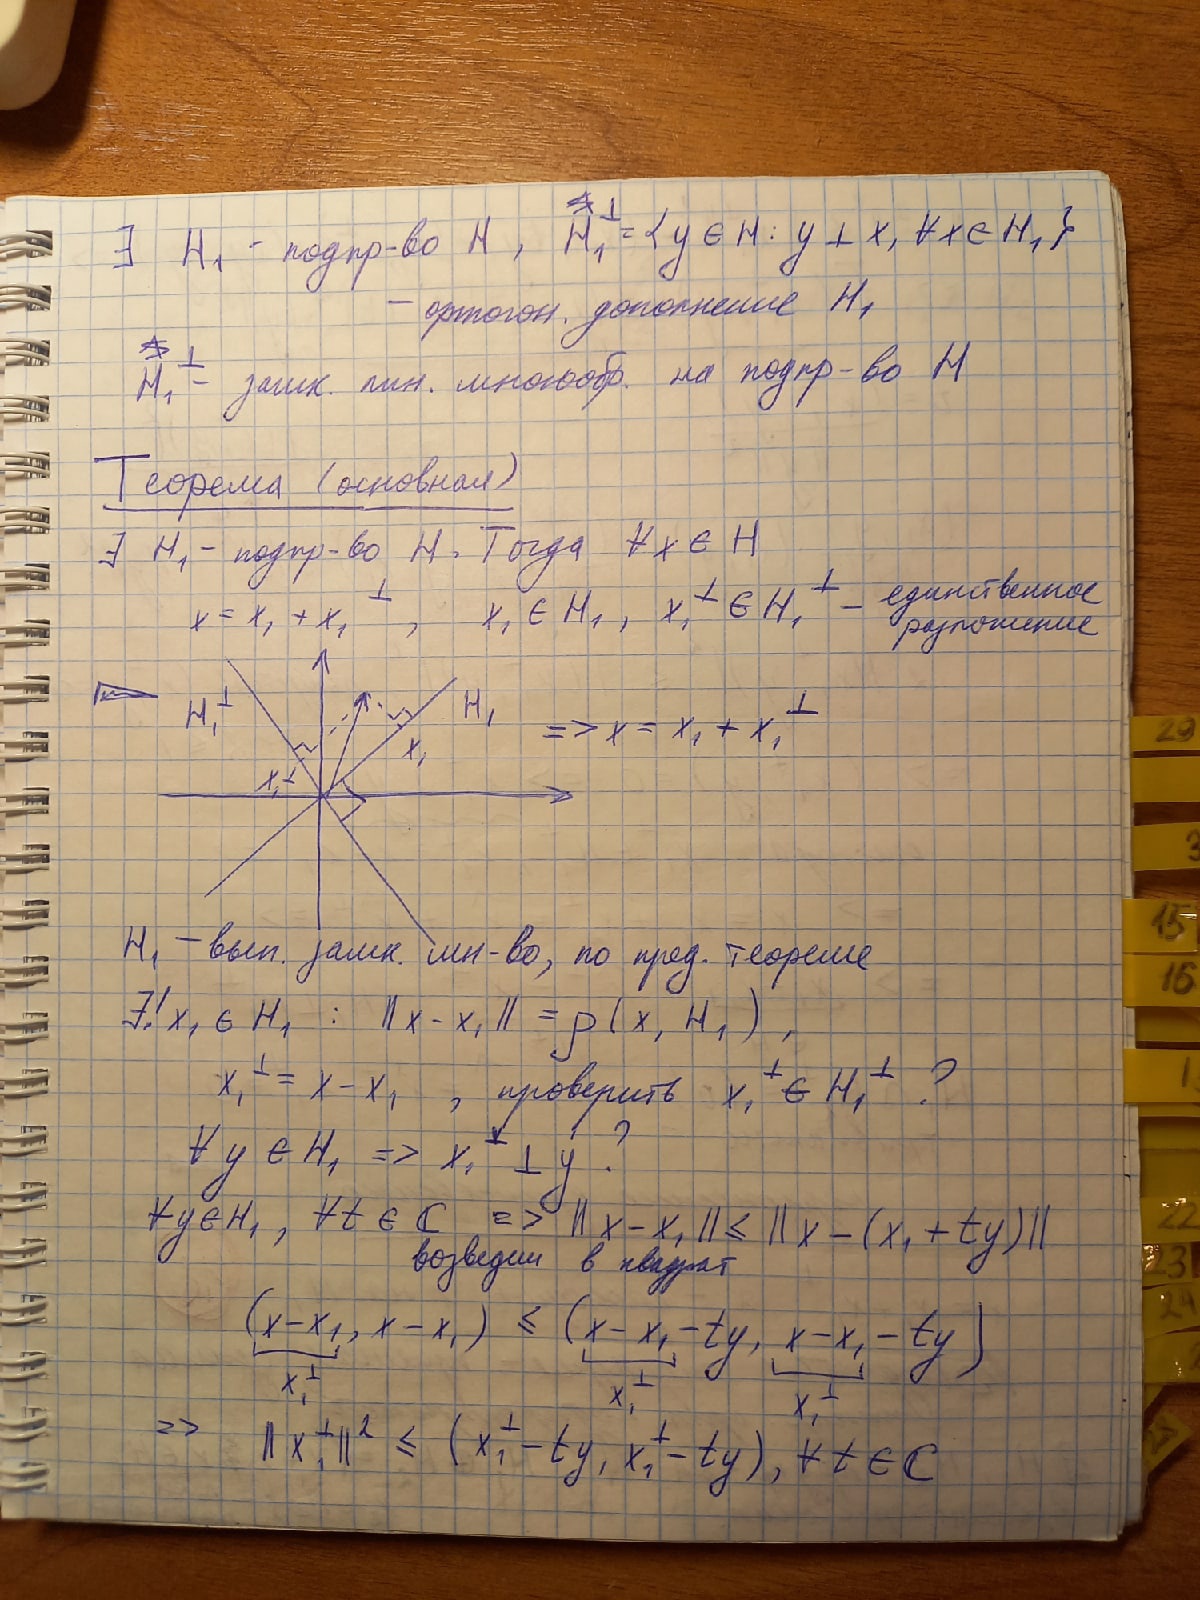 ∃ H₁ - подпр-во H, H₁^⊥ = {y ∈ H : y ⊥ x, ∀x ∈ H₁}
- ортогон. дополнение H₁
H₁^⊥ - замк. лин. многообр. на подпр-во H
Теорема (основная)
∃ H₁ - подпр-во H. Тогда ∀x ∈ H
x = x₁ + x₁^⊥, x₁ ∈ H₁, x₁^⊥ ∈ H₁^⊥ - единственное
разложение
H₁^⊥ H₁
x₁ => x = x₁ + x₁^⊥
x₁^⊥
H₁ - вып. замк. мн-во, по пред. теореме
∃! x₁ ∈ H₁ : ||x - x₁|| = ρ(x, H₁),
x₁^⊥ = x - x₁, проверить x₁^⊥ ∈ H₁^⊥ ?
∀ y ∈ H₁ => x₁^⊥ ⊥ y ?
∀y ∈ H₁, ∀t ∈ ℂ => ||x - x₁|| ≤ ||x - (x₁ + ty)||
возведем в квадрат
(x - x₁, x - x₁) ≤ (x - x₁ - ty, x - x₁ - ty)
x₁^⊥ x₁^⊥ x₁^⊥
=> ||x₁^⊥||² ≤ (x₁^⊥ - ty, x₁^⊥ - ty), ∀ t ∈ ℂ
29
3
15
16
1
22
23
24